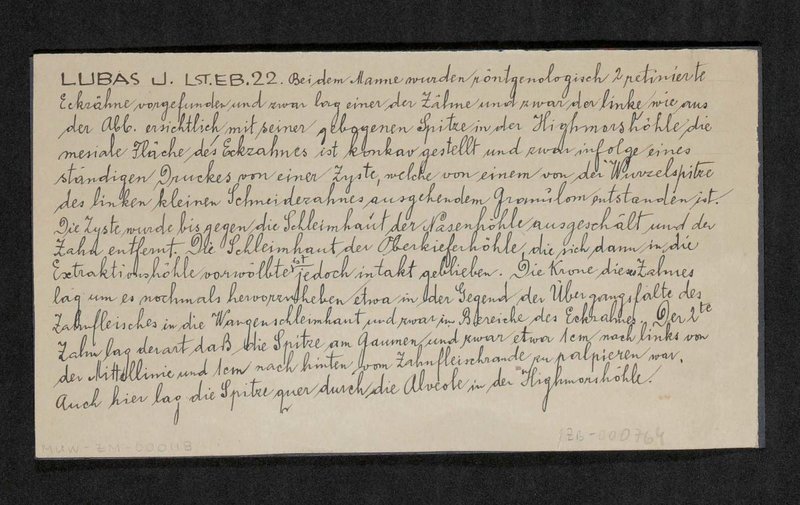 LUBAS J. LST.EB.22. Bei dem Manne wurden röntgenologisch 2 retinierte
Eckzähne vorgefunden und zwar lag einer der Zähne und zwar der linke wie aus
der Abb. ersichtlich mit seiner gebogenen Spitze in der Highmorshöhle, die
mesiale Fläche des Eckzahnes ist konkav gestellt und zwar infolge eines
ständigen Druckes von einer Zyste, welche von einem von der Wurzelspitze
des linken kleinen Schneidezahnes ausgehendem Granulom entstanden ist.
Die Zyste wurde bis gegen die Schleimhaut der Nasenhöhle ausgeschält und der
Zahn entfernt. Die Schleimhaut der Oberkieferhöhle, die sich dann in die
Extraktionshöhle vorwölbte ist jedoch intakt geblieben. Die Krone dieses Zahnes
lag um es nochmals hervorzuheben etwa in der Gegend der Übergangsfalte des
Zahnfleisches in die Wangenschleimhaut und zwar im Bereiche des Eckzahnes. Der 2te
Zahn lag derart daß die Spitze am Gaumen und zwar etwa 1cm nach links von
der Mittellinie und 1cm nach hinten vom Zahnfleischrande zu palpieren war.
Auch hier lag die Spitze quer durch die Alveole in der Highmorshöhle.
MUW-ZM-000118
IZB-000764